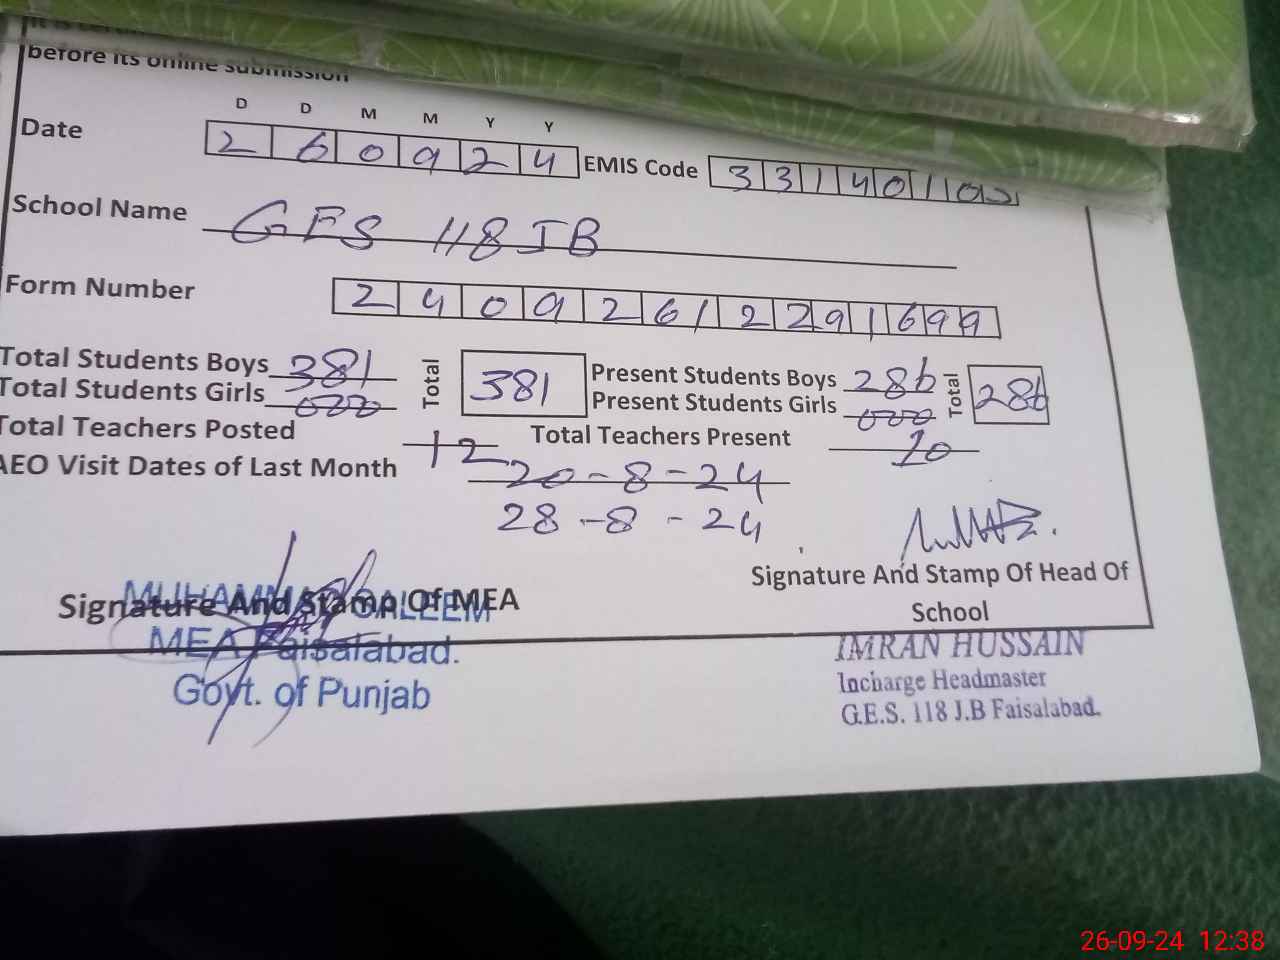 before its online submission
D D M M Y Y
Date 2 6 0 9 2 4 EMIS Code 3 3 1 4 0 1 0
School Name GES 118 JB
Form Number 2 4 0 9 2 6 1 2 2 9 1 6 9 9
Total Students Boys 381 Total 381 Present Students Boys 286 Total 286
Total Students Girls 000 Present Students Girls 000
Total Teachers Posted 12 Total Teachers Present 10
AEO Visit Dates of Last Month 20-8-24
28-8-24
Signature And Stamp Of Head Of
School
Signature And Stamp Of MEA
MUHAMMAD SALEEM
MEA Faisalabad.
Govt. of Punjab
IMRAN HUSSAIN
Incharge Headmaster
G.E.S. 118 J.B Faisalabad.
26-09-24 12:38